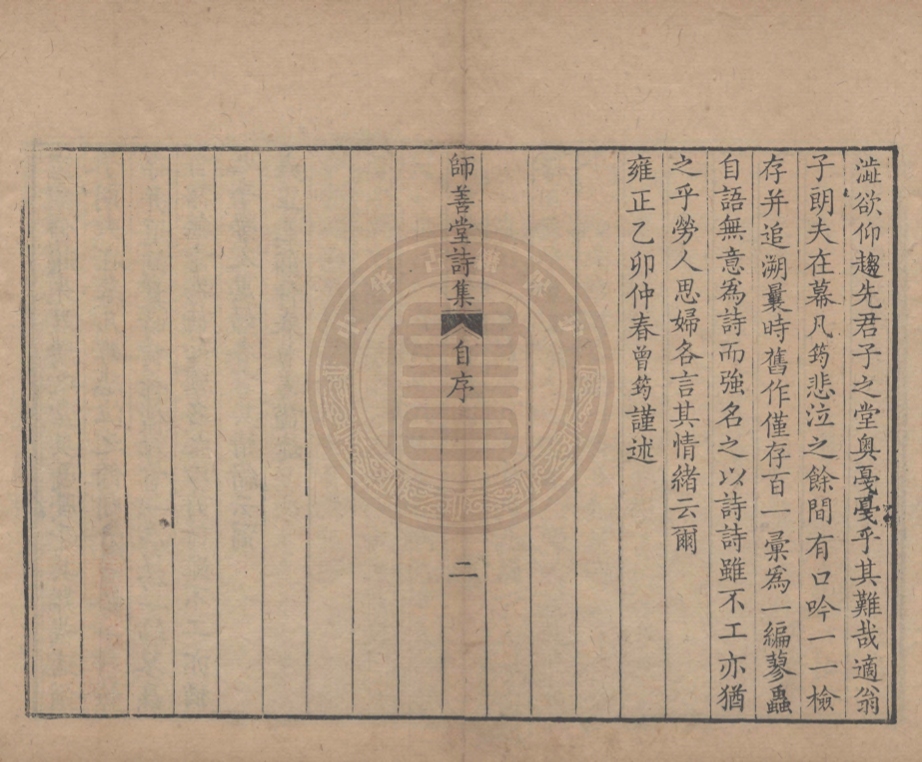 澁欲仰趨先君子之堂奥戞戞乎其難哉適翁
子朗夫在幕凡筠悲泣之餘間有口吟一一檢
存并追溯曩時舊作僅存百一彚爲一編蓼蟲
自語無意爲詩而強名之以詩詩雖不工亦猶
之乎勞人思婦各言其情緒云爾
雍正乙卯仲春曾筠謹述
師善堂詩集 自序 二